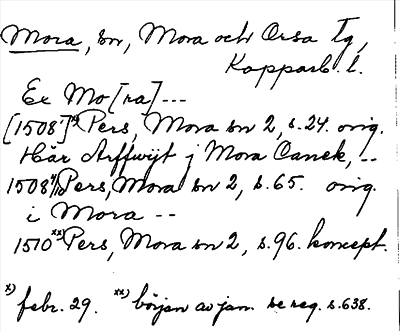 Mora, sn, Mora och Orsa tg,
Kopparb. l.
Ex Mo[ra] ---
[1508]x) Pers, Mora sn 2, s. 24. orig.
Här Arffwijt j Mora Canek, --
1508 4/10 Pers, Mora sn 2, s. 65. orig.
i Mora --
1510xx) Pers, Mora sn 2, s. 96. koncept.
x) febr. 29. xx) början av jan. se reg. s. 638.